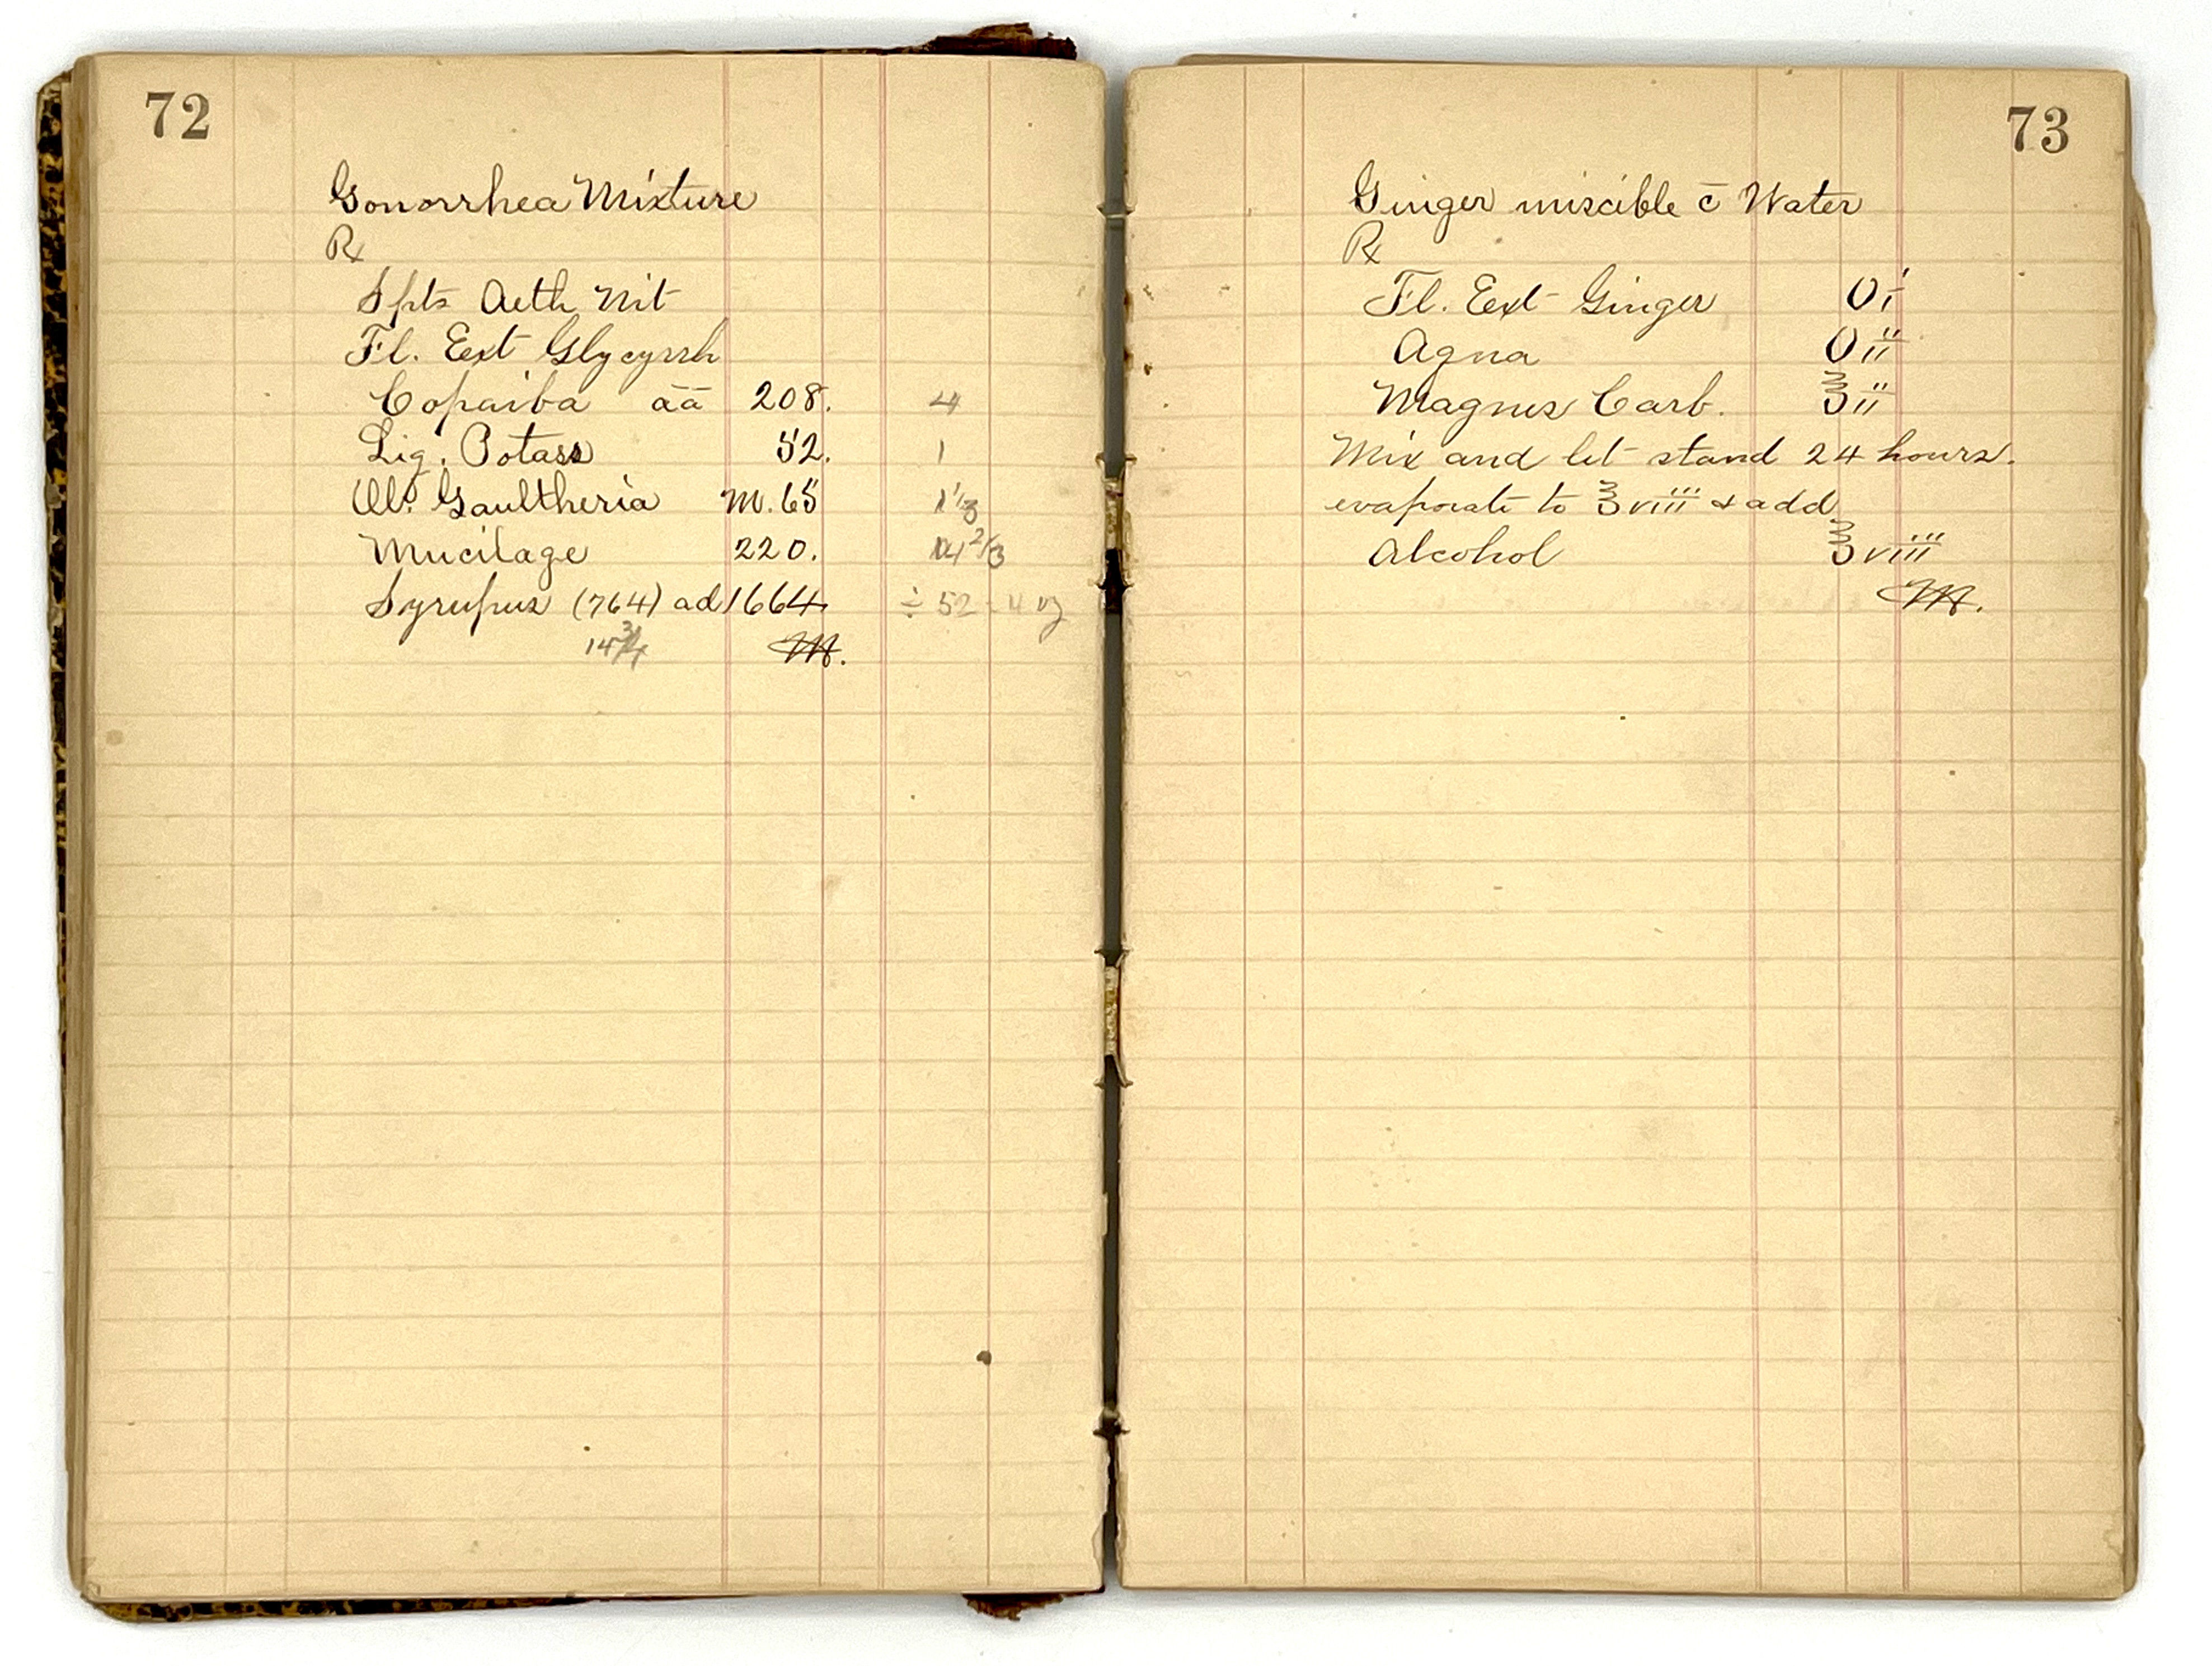 72
Gonorrhea Mixture
℞
Spts Aeth Nit
Fl. Ext Glycyrrh
Copaiba āā 208. 4
Liq. Potass 52. 1
Ol. Gaultheria M. 65 1 1/3
Mucilage 220. 4 2/3
Syrupus (764) ad 1664 ÷ 52 - 4 oz
14 3/4 M.
73
Ginger miscible c̄ Water
℞
Fl. Ext Ginger Oi
Aqua Oii
Magnes Carb. ℥ii
Mix and let stand 24 hours.
evaporate to ℥viii & add
Alcohol ℥viii
M.